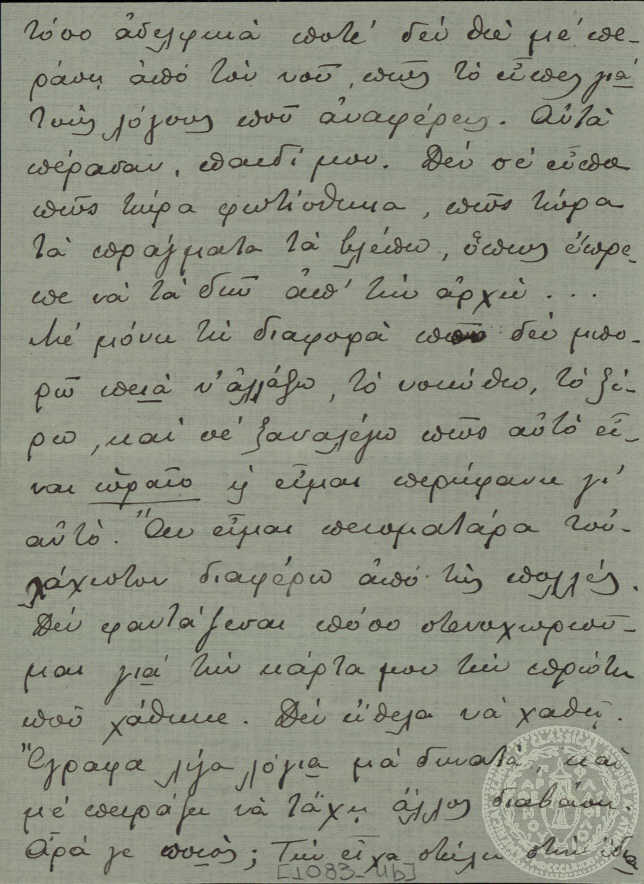 τόσο ἀδελφικὰ ποτὲ δὲν θὰ μὲ πε-
ράσῃ ἀπὸ τὸν νοῦ, πῶς τὸ εἶπες γιὰ
τοὺς λόγους ποῦ ἀναφέρεις. Αὐτὰ
πέρασαν, παιδί μου. Δὲν σὲ εἶπα
πῶς τώρα φωτίσθηκα, πῶς τώρα
τὰ πράγματα τὰ βλέπω, ὅπως ἔπρε-
πε νὰ τὰ δῶ ἀπ' τὴν ἀρχὴ...
Μὲ μόνη τὴ διαφορὰ ποῦ δὲν μπο-
ρῶ πειὰ ν' ἀλλάξω, τὸ νοιώθω, τὸ ξέ-
ρω, καὶ σὲ ξαναλέγω πῶς αὐτὸ εἶ-
ναι ὡραῖο ἢ εἶμαι περήφανη γι'
αὐτό. Ἂν εἶμαι πεισματάρα τοὐ-
λάχιστον διαφέρω ἀπὸ τὶς πολλές.
Δὲν φαντάζεσαι πόσο στενοχωριοῦ-
μαι γιὰ τὴν κάρτα μου τὴν πρώτη
ποῦ χάθηκε. Δὲν ἤθελα νὰ χαθῇ.
Ἔγραφα λίγα λόγια μὰ δυνατά, καὶ
μὲ πειράζει νὰ τἄχῃ ἄλλος διαβάσει.
Ἆρά γε ποιός; Τὴν εἶχα στείλει στὴν ἴδια
[1083-4b]